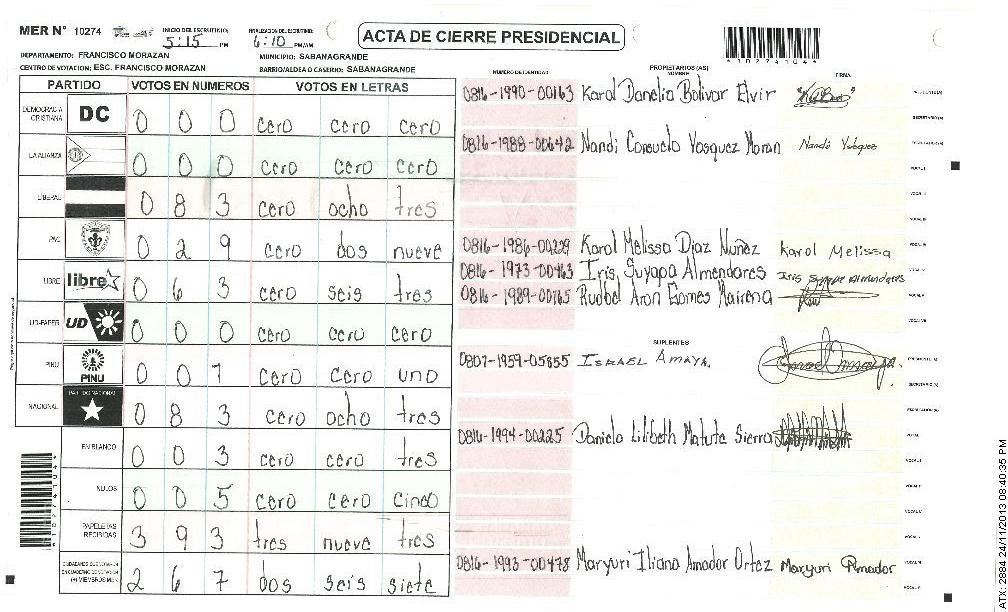 MER N° 10274
INICIO DEL ESCRUTINIO: 5:15 PM
FINALIZACION DEL ESCRUTINIO: 6:10 PM/AM
ACTA DE CIERRE PRESIDENCIAL
*10274104*
DEPARTAMENTO: FRANCISCO MORAZAN
MUNICIPIO: SABANAGRANDE
CENTRO DE VOTACION: ESC. FRANCISCO MORAZAN
BARRIO/ALDEA O CASERIO: SABANAGRANDE
PARTIDO VOTOS EN NUMEROS VOTOS EN LETRAS
DEMOCRACIA CRISTIANA DC 0 0 0 cero cero cero
LA ALIANZA 0 0 0 cero cero cero
LIBERAL 0 8 3 cero ocho tres
PAC 0 2 9 cero dos nueve
LIBRE libre 0 6 3 cero seis tres
UD-FAPER UD 0 0 0 cero cero cero
PINU PINU 0 0 7 cero cero uno
NACIONAL PARTIDO NACIONAL 0 8 3 cero ocho tres
EN BLANCO 0 0 3 cero cero tres
NULOS 0 0 5 cero cero cinco
PAPELETAS RECIBIDAS 3 9 3 tres nueve tres
2 6 7 dos seis siete
NUMERO DE IDENTIDAD PROPIETARIOS (AS) NOMBRE FIRMA
0816-1990-00163 Karol Danelia Bolivar Elvir
SECRETARIO (A)
0816-1988-00642 Nandi Consuelo Vasquez Moran
0816-1986-00229 Karol Melissa Diaz Nuñez Karol Melissa
0816-1973-00463 Iris Suyapa Almendares Iris Suyapa Almendares
0816-1989-00765 Rudbel Aron Gomes Mairena
SUPLENTES
0807-1959-05855 ISRAEL AMAYA.
SECRETARIO (A)
0816-1994-00225 Daniela Lilibeth Matute Sierra
0816-1993-00478 Maryuri Iliana Amador Ortez Maryuri Amador
ATX: 2984 24/11/2013 08:40:35 PM